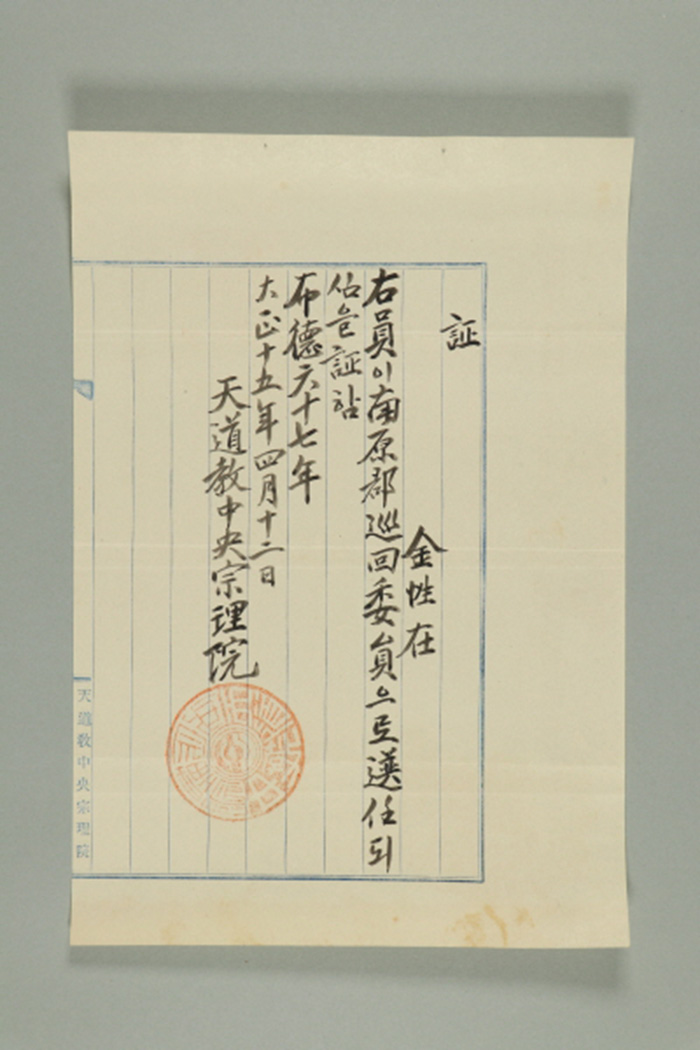 証
金性在
右員이南原郡巡回委員으로選任되
심을証함
布德六十七年
大正十五年四月十二日
天道教中央宗理院
天道教中央宗理院